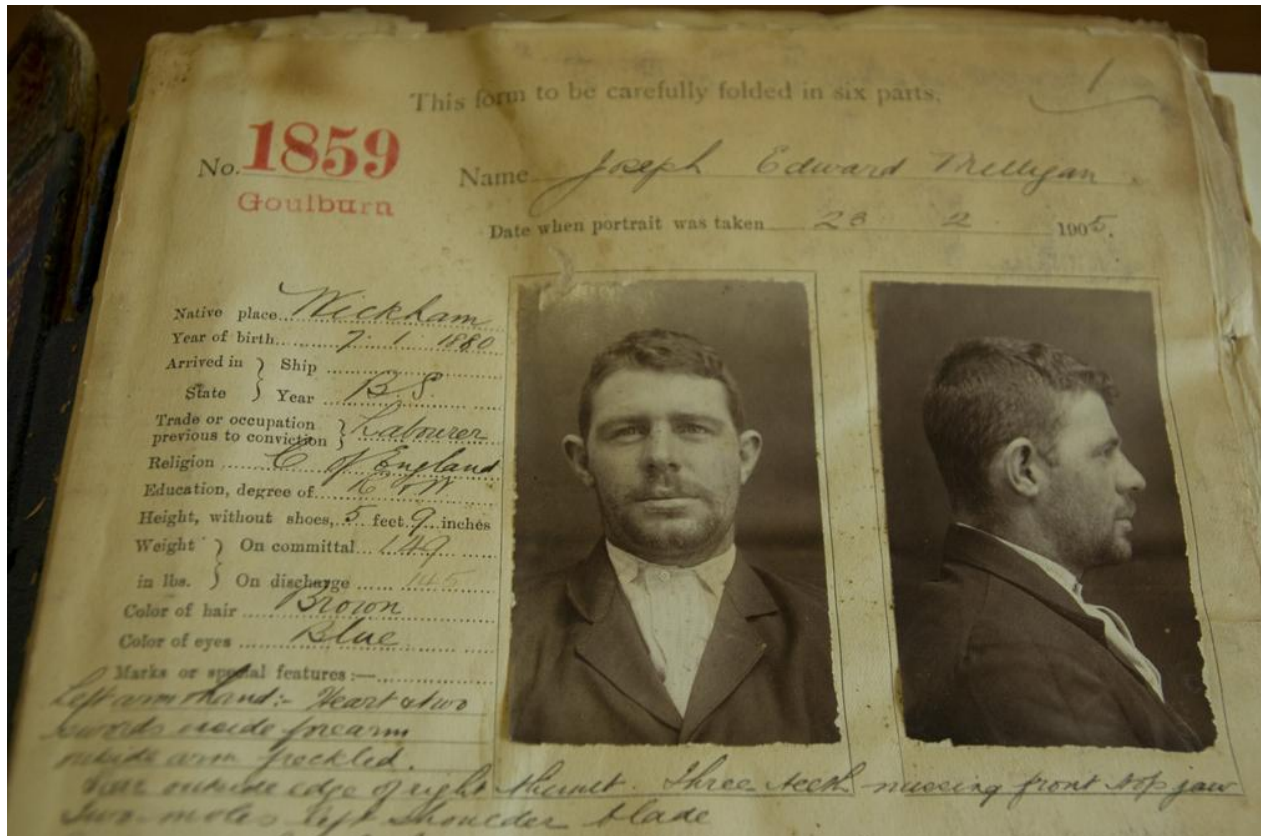 This form to be carefully folded in six parts.
1
No. 1859
Goulburn
Name Joseph Edward Milligan
Date when portrait was taken 28 2 1905.
Native place Wickham
Year of birth 7. 1. 1880
Arrived in State } Ship
Year B.S.
Trade or occupation previous to conviction } Labourer
Religion C of England
Education, degree of R & W
Height, without shoes, 5 feet 9 inches
Weight in lbs. } On committal 149
On discharge 145
Color of hair Brown
Color of eyes Blue
Marks or special features:—
Left arm & hand:- Heart & two
swords inside forearm
outside arm freckled.
Scar outside edge of right thumb. Three teeth missing front top jaw
Two moles left shoulder blade